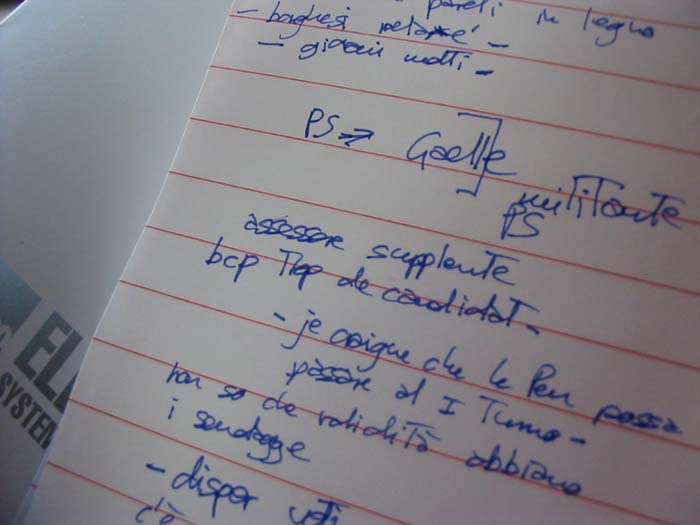 pareti in legno
- borghesi relax é -
- giovani molti -
PS => Gaelle
militante
PS
assessore supplente
bcp Trop de candidat -
- je craigne che le Pen possa
passare al I Turno -
non so che validità abbiano
i sondagge
- disper voti
c'è
EL
SYSTEM